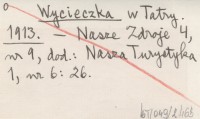 Wycieczka w Tatry.
1913. — Nasze Zdroje 4,
nr 9, dod.: Nasza Turystyka
1, nr 6: 26.